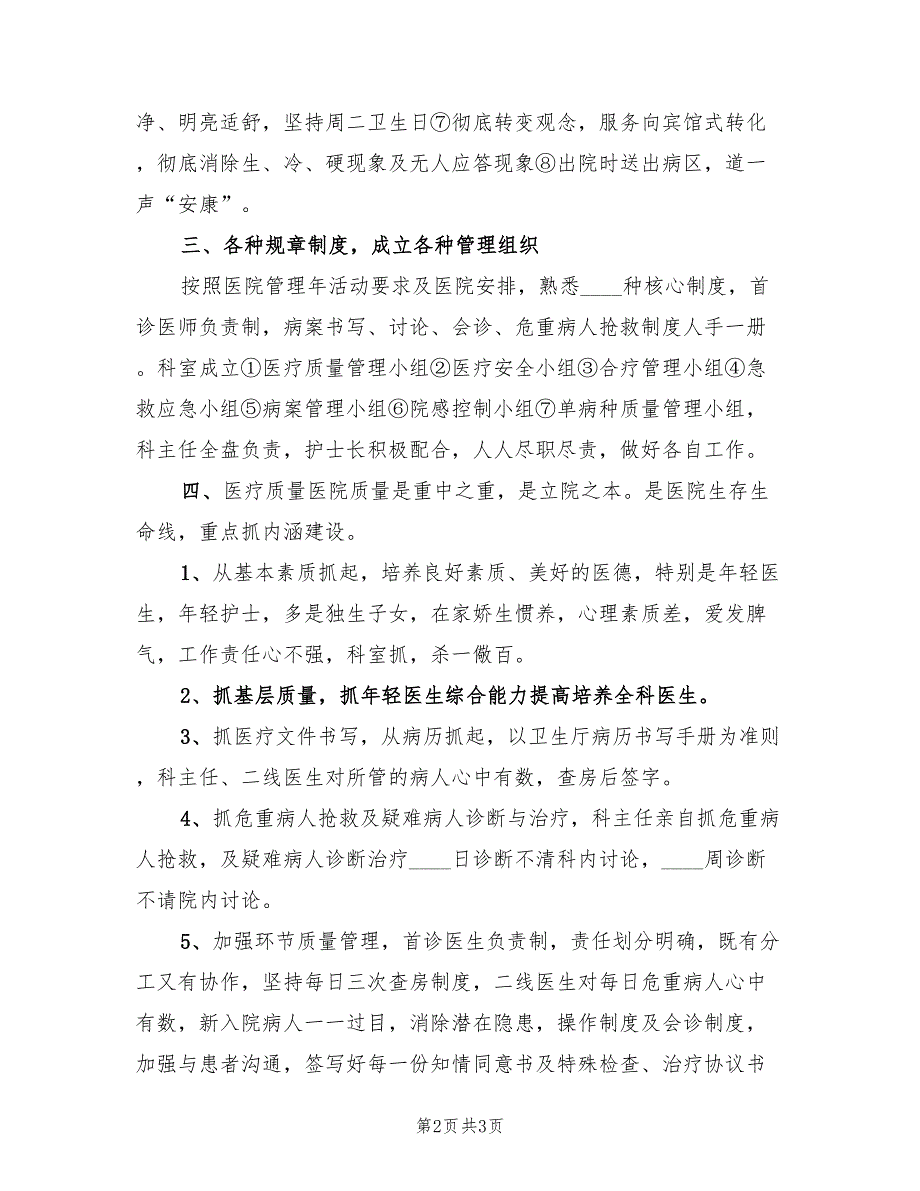 净、明亮适舒，坚持周二卫生日⑦彻底转变观念，服务向宾馆式转化
，彻底消除生、冷、硬现象及无人应答现象⑧出院时送出病区，道一
声“安康”。
三、各种规章制度，成立各种管理组织
按照医院管理年活动要求及医院安排，熟悉____种核心制度，首
诊医师负责制，病案书写、讨论、会诊、危重病人抢救制度人手一册
。科室成立①医疗质量管理小组②医疗安全小组③合疗管理小组④急
救应急小组⑤病案管理小组⑥院感控制小组⑦单病种质量管理小组，
科主任全盘负责，护士长积极配合，人人尽职尽责，做好各自工作。
四、医疗质量医院质量是重中之重，是立院之本。是医院生存生
命线，重点抓内涵建设。
1、从基本素质抓起，培养良好素质、美好的医德，特别是年轻医
生，年轻护士，多是独生子女，在家娇生惯养，心理素质差，爱发脾
气，工作责任心不强，科室抓，杀一儆百。
2、抓基层质量，抓年轻医生综合能力提高培养全科医生。
3、抓医疗文件书写，从病历抓起，以卫生厅病历书写手册为准则
，科主任、二线医生对所管的病人心中有数，查房后签字。
4、抓危重病人抢救及疑难病人诊断与治疗，科主任亲自抓危重病
人抢救，及疑难病人诊断治疗____日诊断不清科内讨论，____周诊断
不请院内讨论。
5、加强环节质量管理，首诊医生负责制，责任划分明确，既有分
工又有协作，坚持每日三次查房制度，二线医生对每日危重病人心中
有数，新入院病人一一过目，消除潜在隐患，操作制度及会诊制度，
加强与患者沟通，签写好每一份知情同意书及特殊检查、治疗协议书
第2页共3页